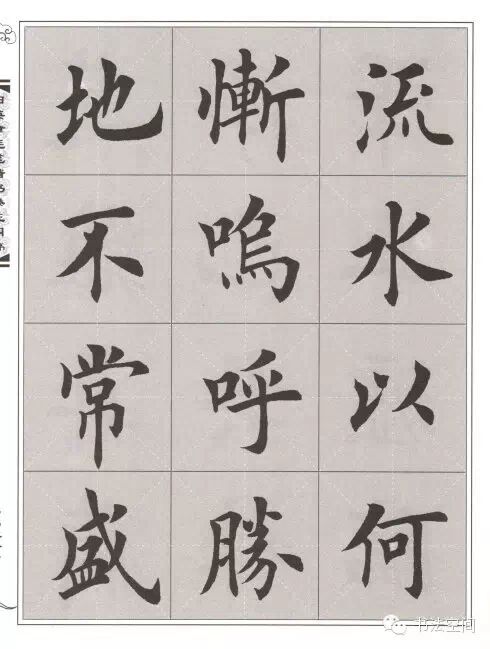 流水以何
慚嗚呼勝
地不常盛
书法空间